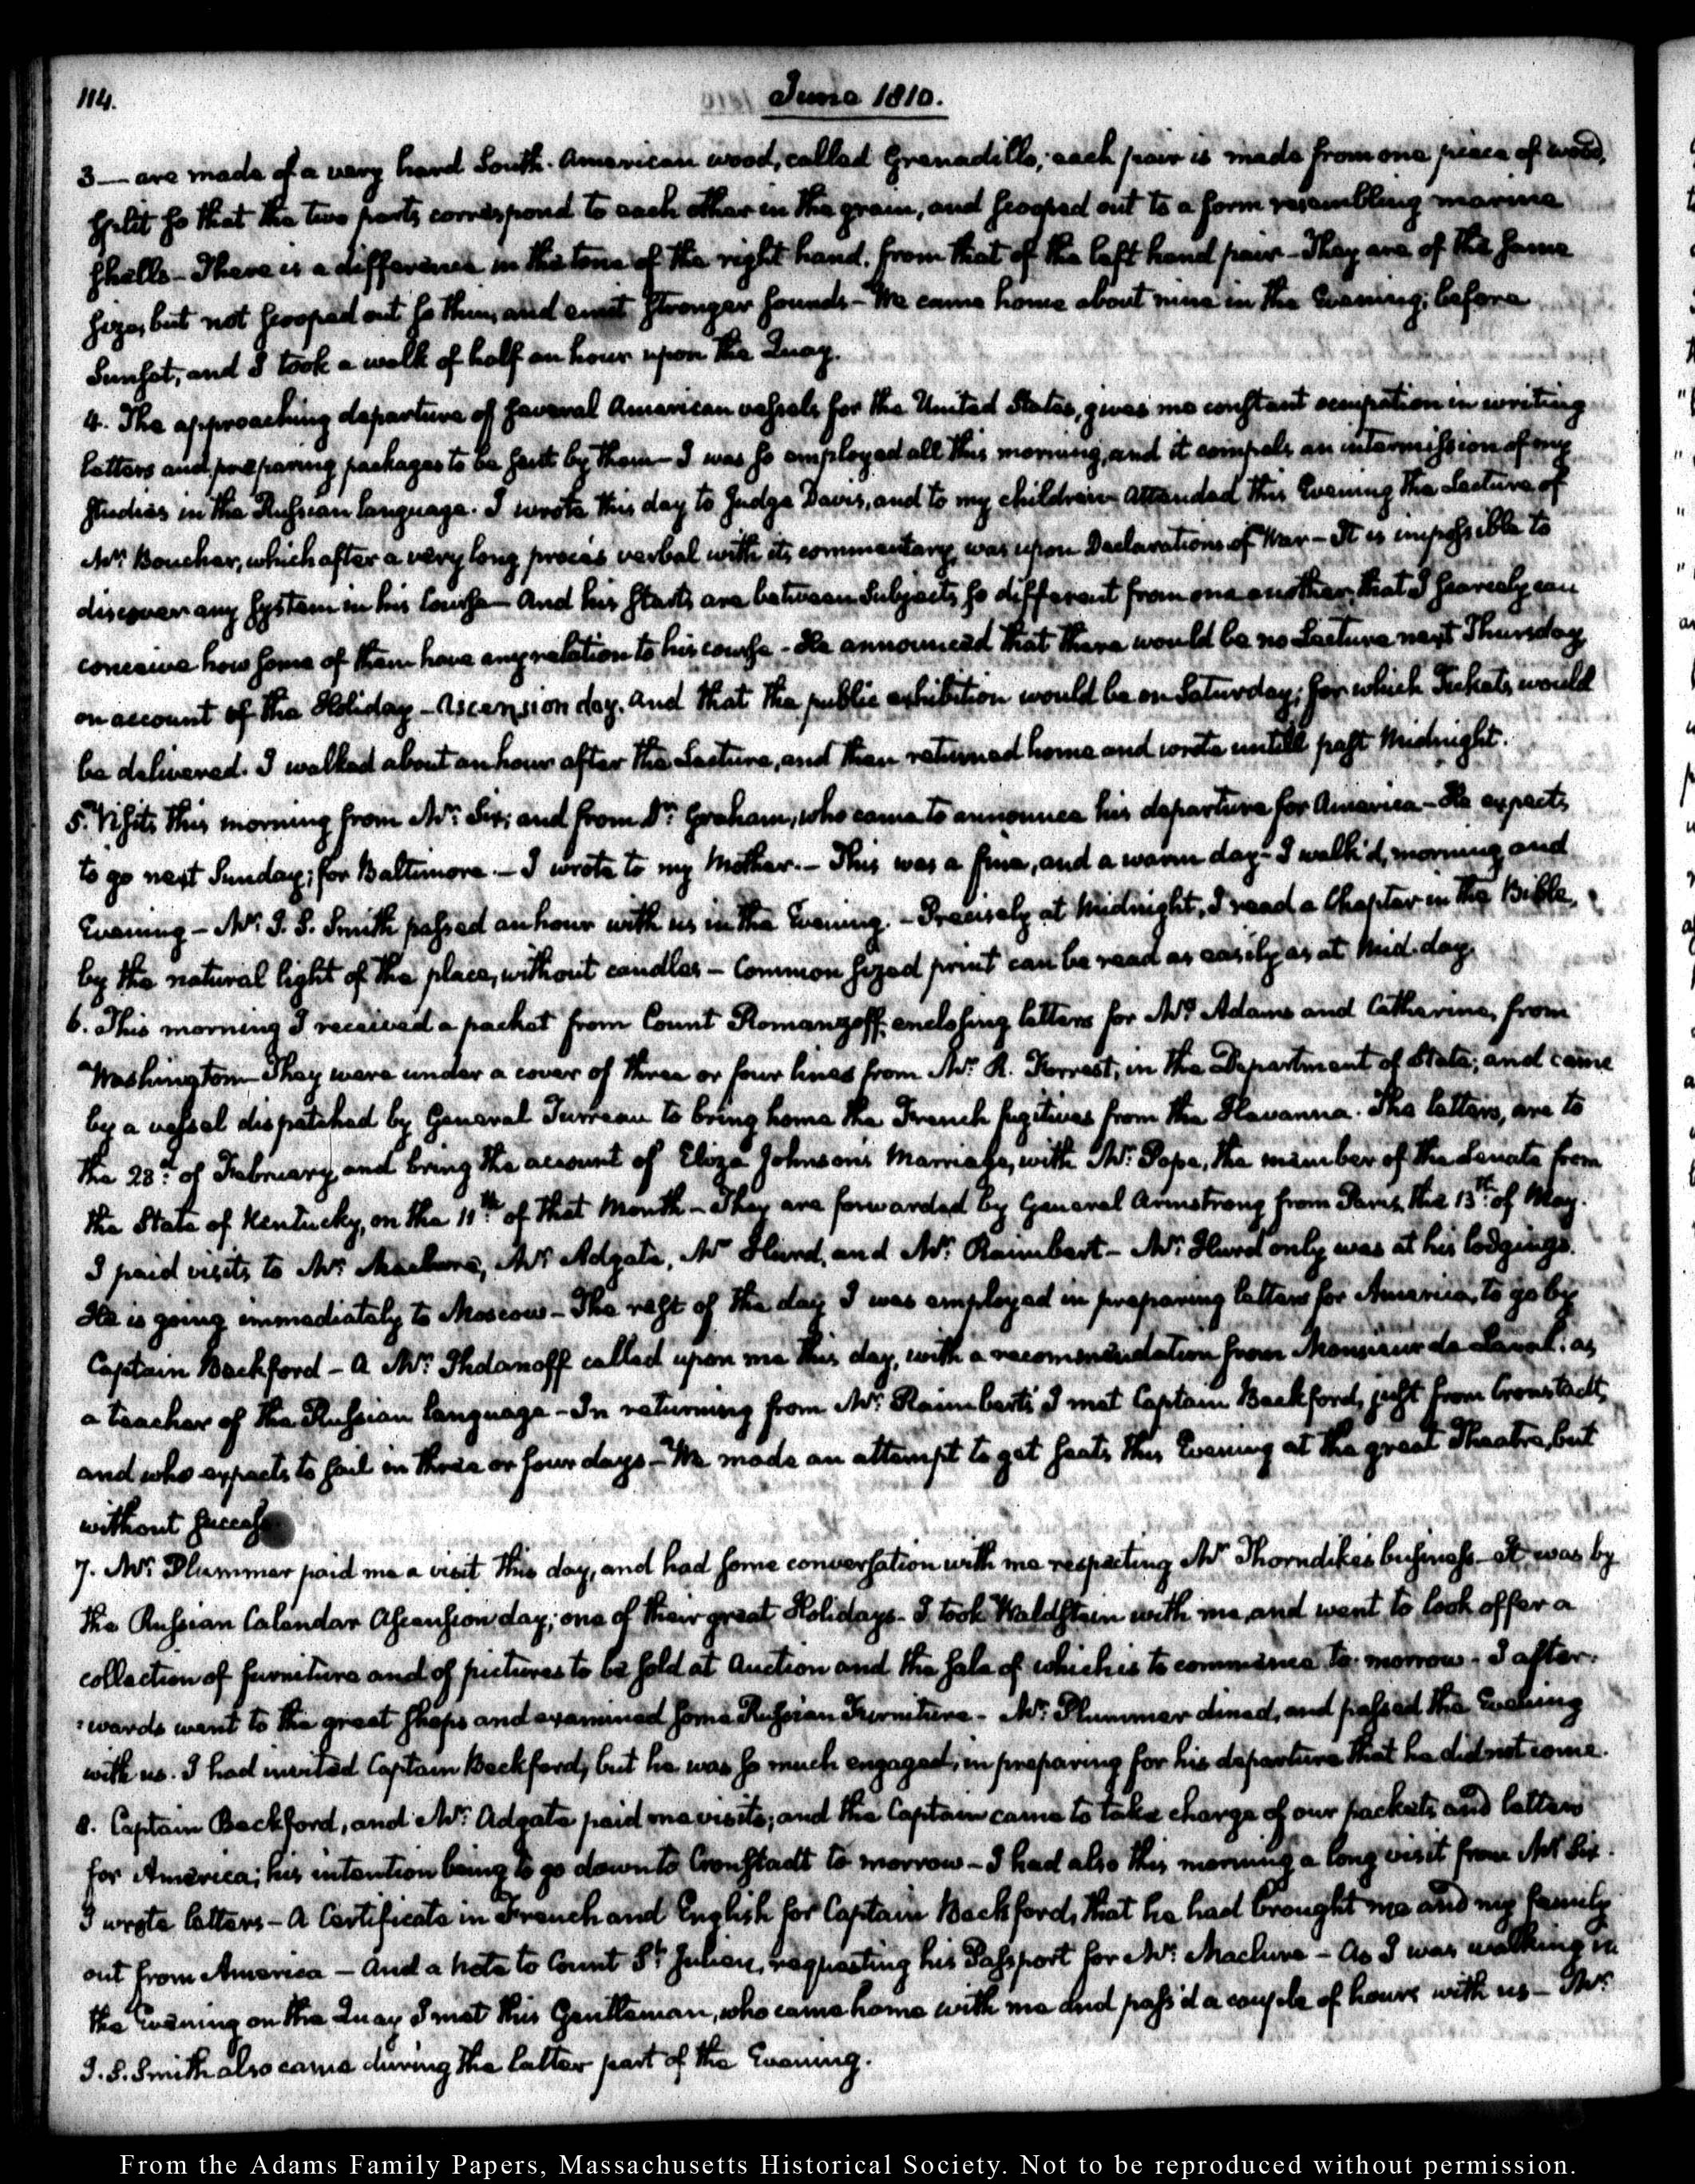 114.
June 1810.
3 — are made of a very hard South-American wood, called Grenadille; each pair is made from one piece of wood,
split so that the two parts correspond to each other in the grain, and scooped out to a form resembling marine
shells — There is a difference in the tone of the right hand, from that of the left hand pair — They are of the same
size, but not scooped out so thin, and emit stronger sounds — We came home about nine in the Evening, before
Sunset, and I took a walk of half an hour upon the Quay.
4. The approaching departure of several American vessels for the United States, gives me constant occupation in writing
letters and preparing packages to be sent by them — I was so employed all this morning, and it compels an intermission of my
studies in the Russian language. I wrote this day to Judge Davis, and to my children — Attended this Evening the Lecture of
Mr. Boucher, which after a very long procès verbal with its commentary, was upon Declarations of War — It is impossible to
discover any System in his Course — And his starts are between Subjects so different from one another, that I scarcely can
conceive how some of them have any relation to his course — He announced that there would be no Lecture next Thursday
on account of the Holiday — Ascension day. And that the public exhibition would be on Saturday; for which Tickets would
be delivered. I walked about an hour after the Lecture, and then returned home and wrote untill past Midnight.
5. Visits this morning from Mr. Six; and from Dr. Graham, who came to announce his departure for America — He expects
to go next Sunday; for Baltimore. — I wrote to my Mother. — This was a fine, and a warm day — I walk'd, morning and
Evening — Mr. J. S. Smith passed an hour with us in the Evening. — Precisely at Midnight, I read a Chapter in the Bible,
by the natural light of the place, without candles — Common sized print can be read as easily as at Mid-day.
6. This morning I received a packet from Count Romanzoff, enclosing letters for Mrs. Adams and Catherine, from
Washington — They were under a cover of three or four lines from Mr. R. Forrest, in the Department of State; and came
by a vessel dispatched by General Turreau to bring home the French fugitives from the Havanna. The letters, are to
the 28th. of February, and bring the account of Eliza Johnson's Marriage, with Mr. Pope, the member of the Senate from
the State of Kentucky, on the 11th. of that Month — They are forwarded by General Armstrong from Paris, the 13th. of May.
I paid visits to Mr. Maclure, Mr. Adgate, Mr. Hurd, and Mr. Raimbert — Mr. Hurd only was at his lodgings.
He is going immediately to Moscow — The rest of the day I was employed in preparing letters for America, to go by
Captain Beckford — A Mr. Shdanoff called upon me this day, with a recommendation from Monsieur de Laval; as
a teacher of the Russian language — In returning from Mr. Raimbert's I met Captain Beckford, just from Cronstadt,
and who expects to sail in three or four days — We made an attempt to get seats this Evening at the great Theatre, but
without success
7. Mr. Plummer paid me a visit this day, and had some conversation with me respecting Mr. Thorndike's business — It was by
the Russian Calendar Ascension day; one of their great Holidays — I took Waldstein with me, and went to look offer a
collection of furniture and of pictures to be sold at Auction and the sale of which is to commence to-morrow — I after-
:wards went to the great shops and examined some Russian Furniture — Mr. Plummer dined, and passed the Evening
with us. I had invited Captain Beckford; but he was so much engaged, in preparing for his departure that he did not come.
8. Captain Beckford, and Mr. Adgate paid me visits; and the Captain came to take charge of our packets and letters
for America; his intention being to go down to Cronstadt to morrow — I had also this morning a long visit from Mr. Six.
I wrote letters — A Certificate in French and English for Captain Beckford, that he had brought me and my family
out from America — And a note to Count St. Julien, requesting his Passport for Mr. Maclure — As I was walking in
the Evening on the Quay I met this Gentleman, who came home with me and pass'd a couple of hours with us — Mr.
J. S. Smith also came during the latter part of the Evening.
From the Adams Family Papers, Massachusetts Historical Society. Not to be reproduced without permission.